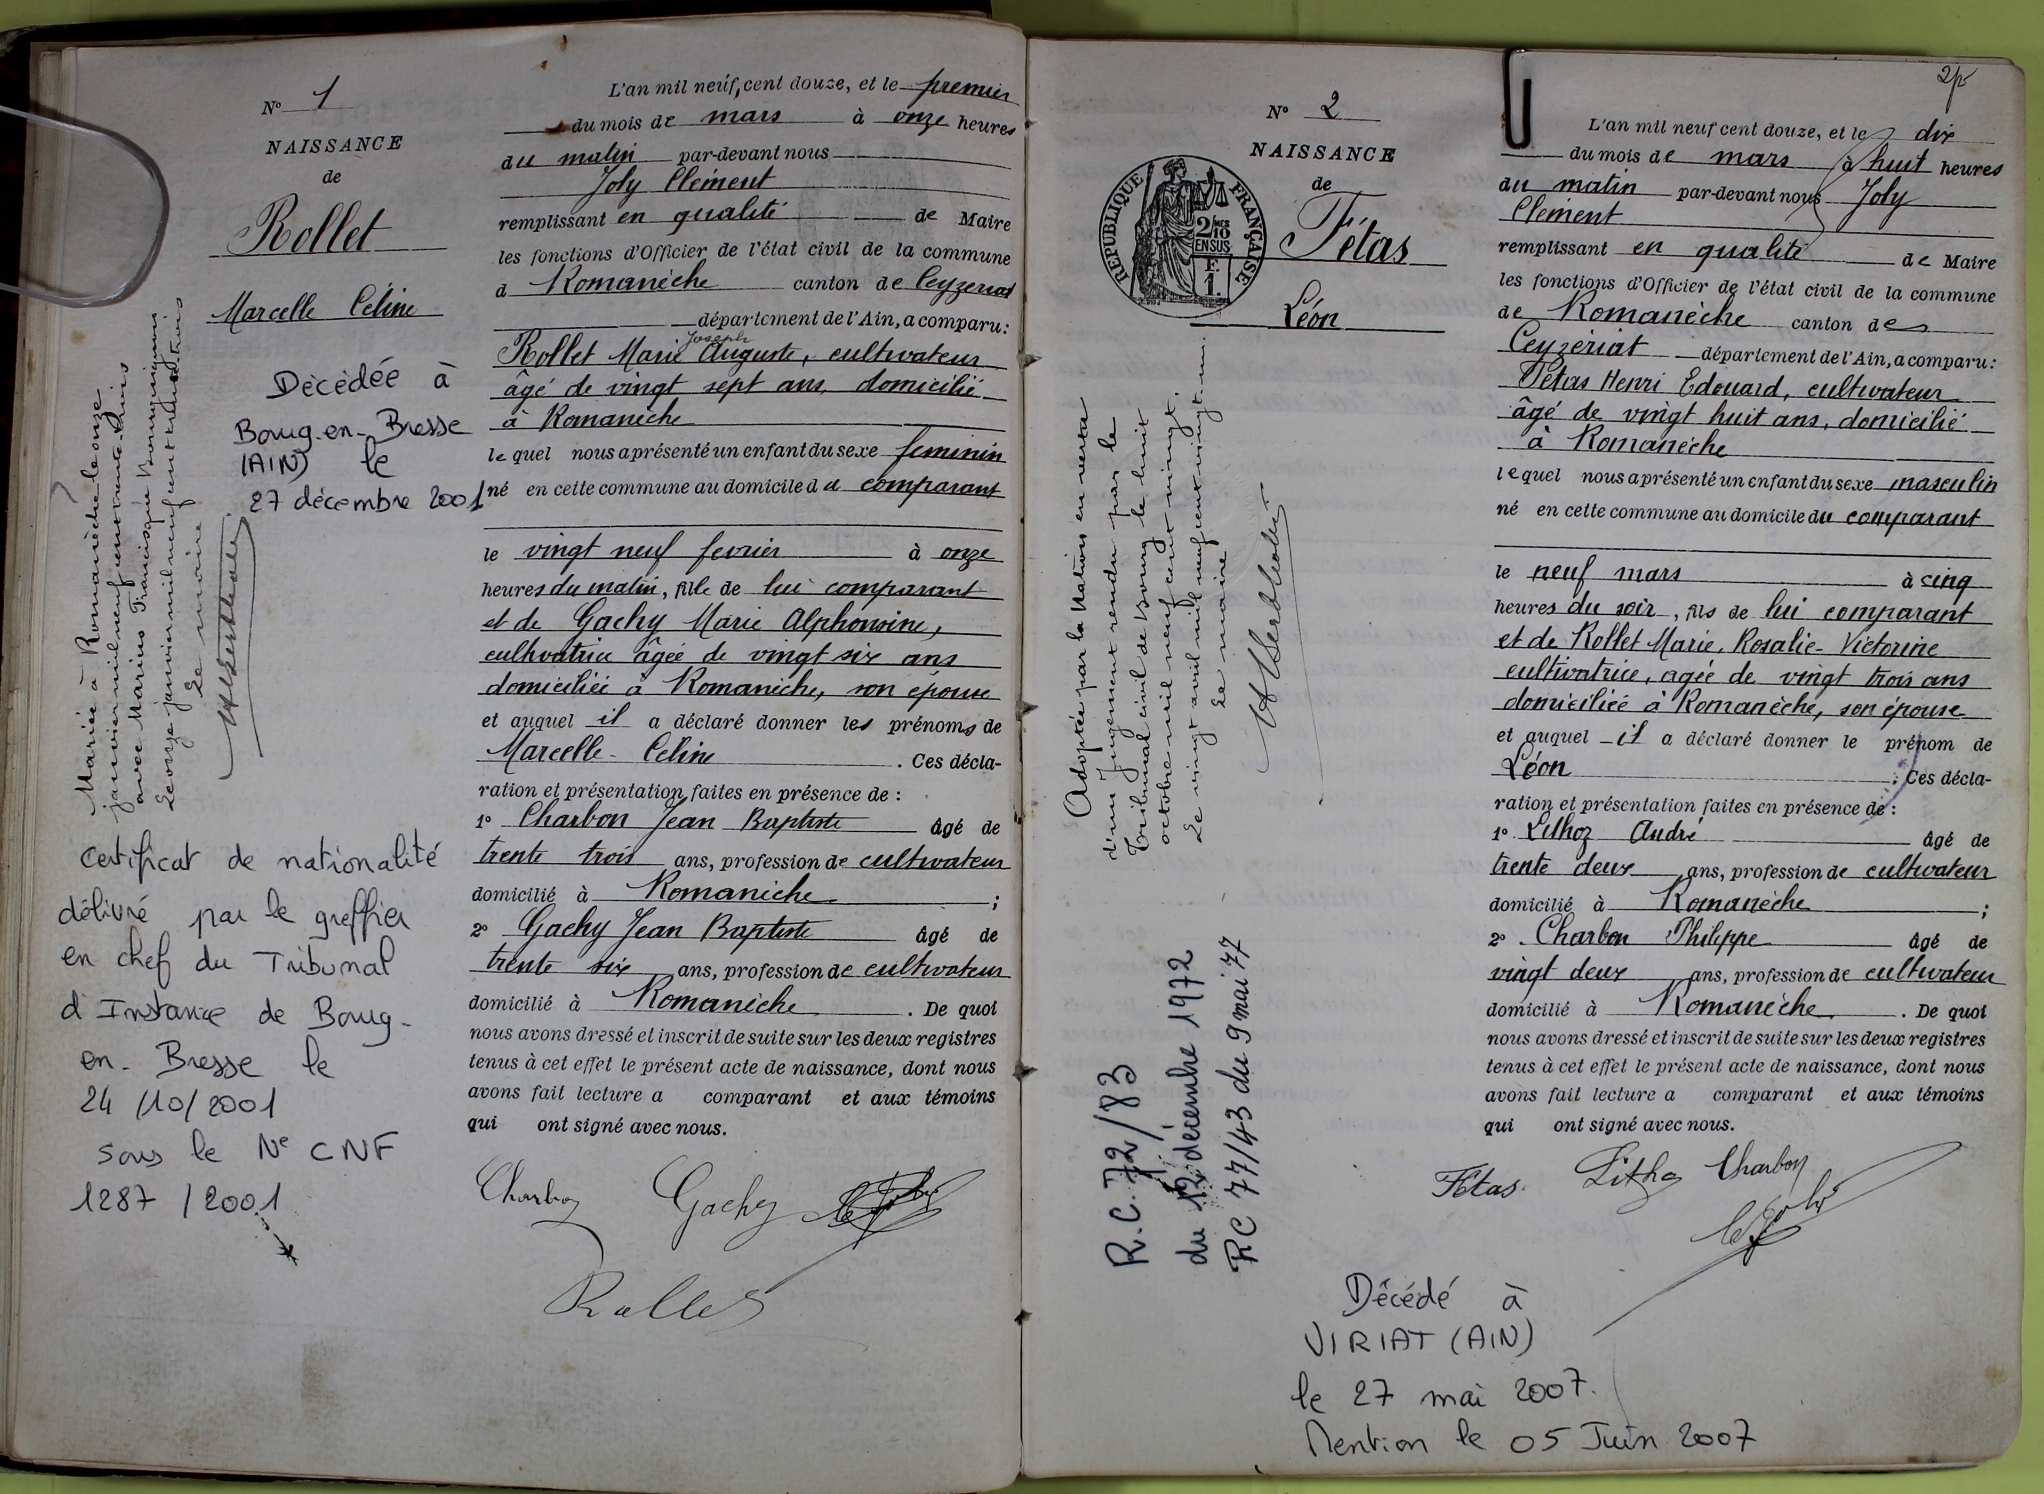 N° 1
NAISSANCE
de
Rollet
Marcelle Céline
Décédée à
Bourg-en-Bresse
(AIN) le
27 décembre 2001
Mariée à Romanèche le onze
janvier mil neuf cent trente-trois
avec Marius Francisque
Le onze janvier mil neuf cent trente trois
Le maire
Certificat de nationalité
délivré par le greffier
en chef du Tribunal
d'Instance de Bourg-
en-Bresse le
24/10/2001
sous le N° CNF
1287/2001
L'an mil neuf cent douze, et le premier
du mois de mars à onze heures
du matin par-devant nous
Joly Clément
remplissant en qualité de Maire
les fonctions d'Officier de l'état civil de la commune
d Romanèche canton de Ceyzeriat
département de l'Ain, a comparu:
Joseph
Rollet Marie Auguste, cultivateur
âgé de vingt sept ans, domicilié
à Romanèche
lequel nous a présenté un enfant du sexe feminin
né en cette commune au domicile du comparant
le vingt neuf fevrier à onze
heures du matin, fille de lui comparant
et de Gachy Marie Alphonsine,
cultivatrice âgée de vingt six ans
domiciliée à Romanèche, son épouse
et auquel il a déclaré donner les prénoms de
Marcelle-Céline. Ces décla-
ration et présentation faites en présence de :
1° Charbon Jean Baptiste âgé de
trente trois ans, profession de cultivateur
domicilié à Romanèche ;
2° Gachy Jean Baptiste âgé de
trente six ans, profession de cultivateur
domicilié à Romanèche. De quoi
nous avons dressé et inscrit de suite sur les deux registres
tenus à cet effet le présent acte de naissance, dont nous
avons fait lecture a comparant et aux témoins
qui ont signé avec nous.
Charbon Gachy
Rollet
N° 2
NAISSANCE
de
Fétas
Léon
REPUBLIQUE FRANÇAISE
2/10
EN SUS
F.
1.
Adoptée par la Nation en vertu
d'un jugement rendu par le
Tribunal civil de Bourg le huit
octobre mil neuf cent vingt.
Le vingt avril mil neuf cent vingt-un.
Le maire
R.C. 72/83
du 12 décembre 1972
RC 77/43 du 9 mai 77
L'an mil neuf cent douze, et le dix
du mois de mars à huit heures
du matin par-devant nous Joly
Clément
remplissant en qualité de Maire
les fonctions d'Officier de l'état civil de la commune
de Romanèche canton de
Ceyzériat département de l'Ain, a comparu:
Fétas Henri Edouard, cultivateur
âgé de vingt huit ans, domicilié
à Romanèche
lequel nous a présenté un enfant du sexe masculin
né en cette commune au domicile du comparant
le neuf mars à cinq
heures du soir, fils de lui comparant
et de Rollet Marie, Rosalie-Victorine
cultivatrice, agée de vingt trois ans
domiciliée à Romanèche, son épouse
et auquel il a déclaré donner le prénom de
Léon. Ces décla-
ration et présentation faites en présence de :
1° André âgé de
trente deux ans, profession de cultivateur
domicilié à Romanèche ;
2° Charbon Philippe âgé de
vingt deux ans, profession de cultivateur
domicilié à Romanèche. De quoi
nous avons dressé et inscrit de suite sur les deux registres
tenus à cet effet le présent acte de naissance, dont nous
avons fait lecture a comparant et aux témoins
qui ont signé avec nous.
Fétas. Charbon
Décédé à
VIRIAT (AIN)
le 27 mai 2007.
Mention le 05 Juin 2007